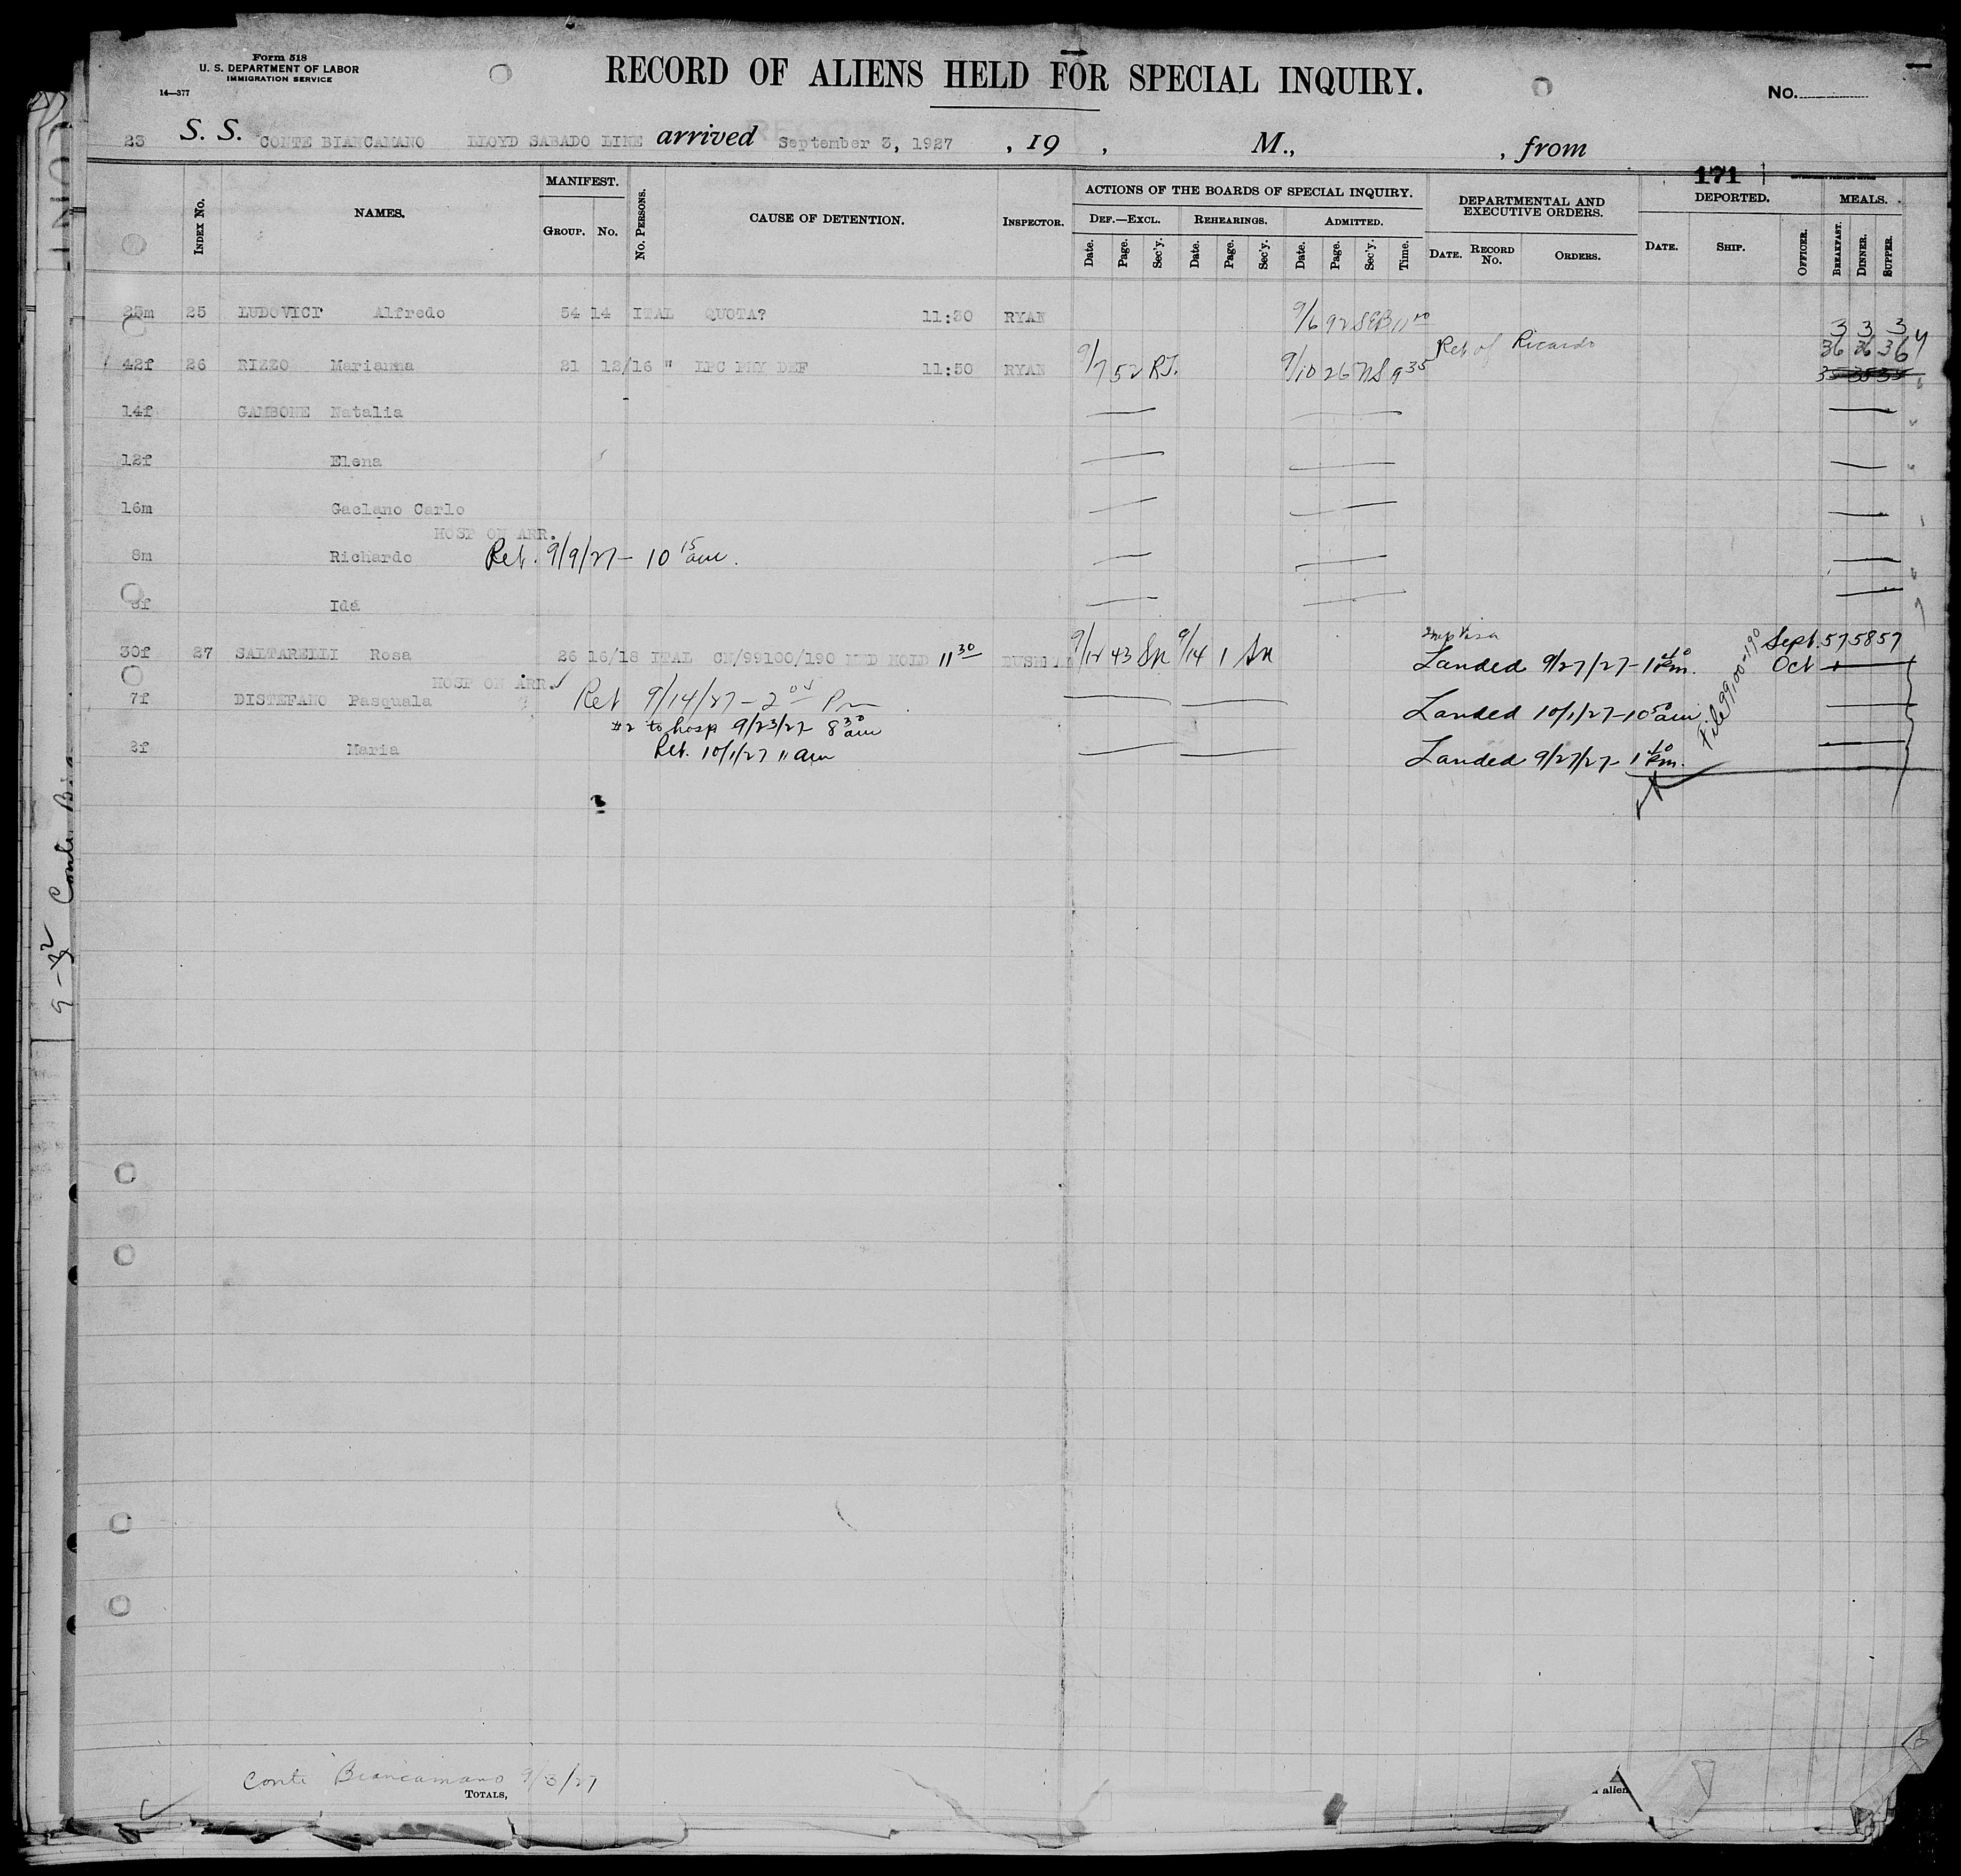 Form 518
U. S. DEPARTMENT OF LABOR
IMMIGRATION SERVICE
14—377
RECORD OF ALIENS HELD FOR SPECIAL INQUIRY.
No.
23 S. S. CONTE BIANCAMANO LLOYD SABADO LINE arrived September 3, 1927 , 19 , M., , from
171
INDEX No. NAMES. MANIFEST. GROUP. No. No. PERSONS. CAUSE OF DETENTION. INSPECTOR. ACTIONS OF THE BOARDS OF SPECIAL INQUIRY. DEF.—EXCL. Date. Page. Sec'y. REHEARINGS. Date. Page. Sec'y. ADMITTED. Date. Page. Sec'y. Time. DEPARTMENTAL AND EXECUTIVE ORDERS. DATE. RECORD No. ORDERS. DEPORTED. DATE. SHIP. OFFICER. MEALS. BREAKFAST. DINNER. SUPPER.
25 LUDOVICI Alfredo 54 14 ITAL QUOTA? 11:30 RYAN 9/6 92 SEB 11 00 3 3 3
Ret of Ricardo 36 36 36
42f 26 RIZZO Marianna 21 12/16 " LPC PHY DEF 11:50 RYAN 9/7 52 RJ. 9/10 26 NS 9 35 35 35 35
14f GAMBONE Natalia
12f Elena
16m Gaclano Carlo
HOSP ON ARR.
8m Richardo Ret. 9/9/27 — 10 15 am.
Ida
30f 27 SALTARELLI Rosa 26 16/18 ITAL CE/99100/190 MED HOLD 11 30 9/12 43 Sn 9/14 1 Sn Landed 9/27/27 - 1 10 Pm. Sept. 57 58 57
Oct 1
File 99,100-190
HOSP ON ARR.
7f DISTEFANO Pasquala Ret 9/14/27 - 2 05 Pm Landed 10/1/27 - 10 50 am
#2 to hosp 9/23/27 8 30 am
2f Maria Ret. 10/1/27 11 am Landed 9/27/27 - 1 10 Pm.
Conte Biancamano 9/3/27
TOTALS,
alien